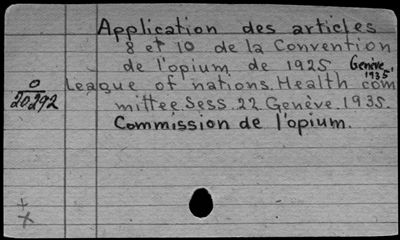 Application des articles
8 et 10 de la Convention
de l'opium de 1925 Genève,
1935.
O
20,292
League of nations. Health com
mittee. Sess. 22. Genève. 1935.
Commission de l'opium.
+
x